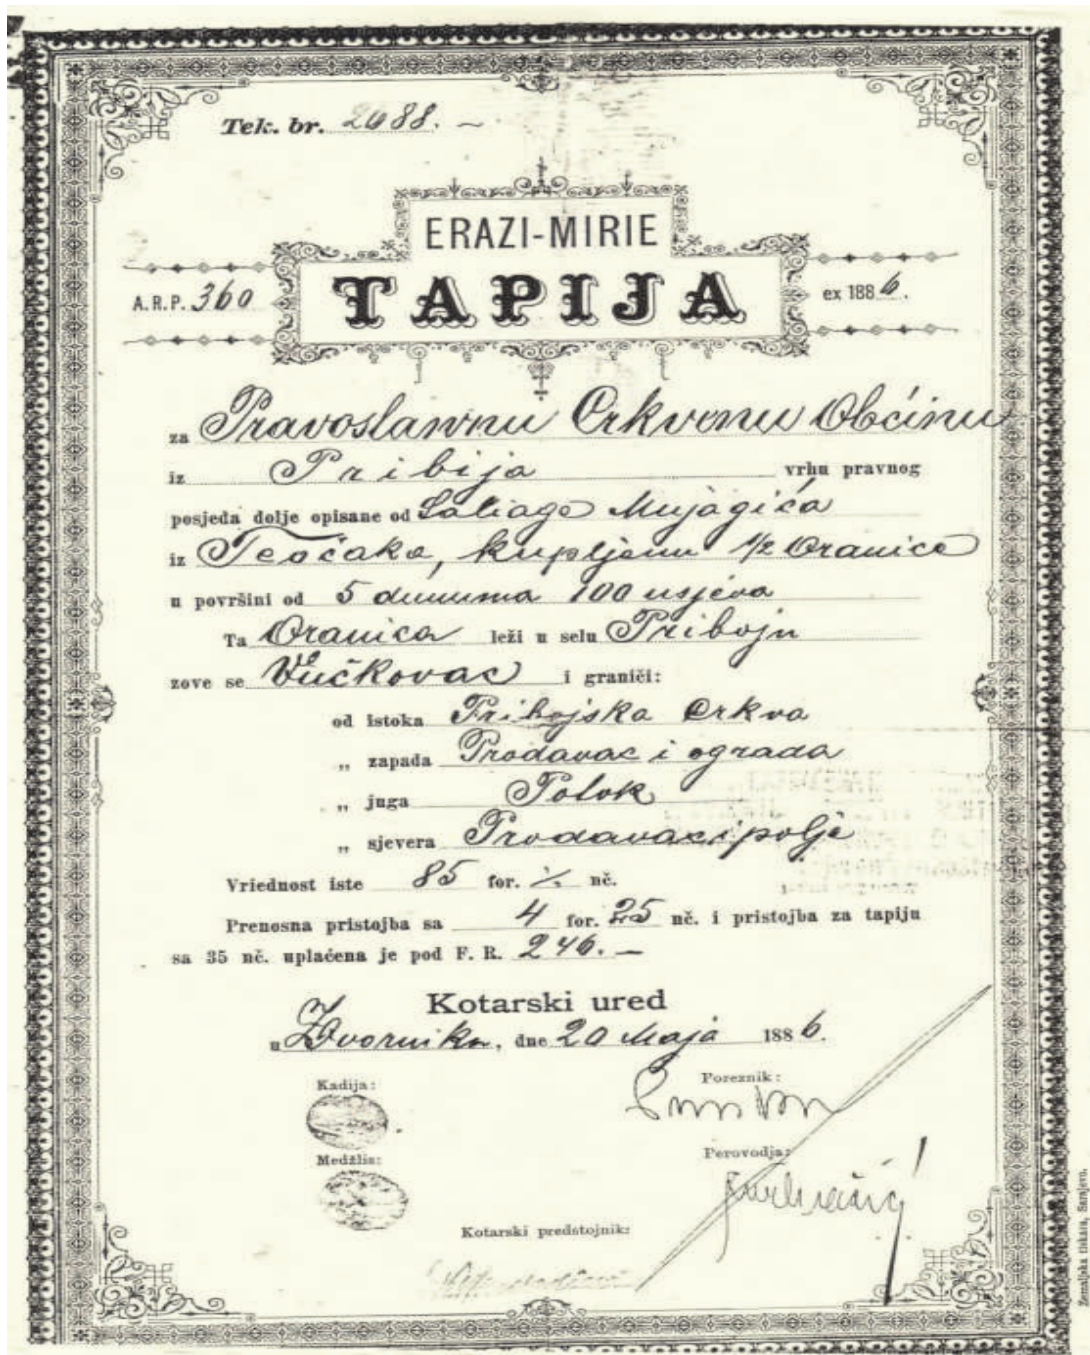 Tek. br. 2688. –
ERAZI-MIRIE
TAPIJA
A.R.P. 360
ex 1886.
za Pravoslavnu Crkvenu Občinu
iz Pribija vrhu pravnog
posjeda dolje opisane od Saliage Mujagića
iz Teočaka, kupljenu 1/2 Oranice
u površini od 5 dunuma 100 usjeva
Ta Oranica leži u selu Priboju
zove se Vučkovac i graniči:
od istoka Pribojska Crkva
„ zapada Prodavac i ograda
„ juga Potok
„ sjevera Prodavac i polje
Vriednost iste 85 for. nč.
Prenosna pristojba sa 4 for. 25 nč. i pristojba za tapiju
sa 35 nč. uplaćena je pod F. R. 246. –
Kotarski ured
u Zvorniku, dne 20 Maja 1886.
Kadija:
Poreznik:
Medžlis:
Perovodja:
Kotarski predstojnik:
Zemaljska tiskara, Sarajevo.